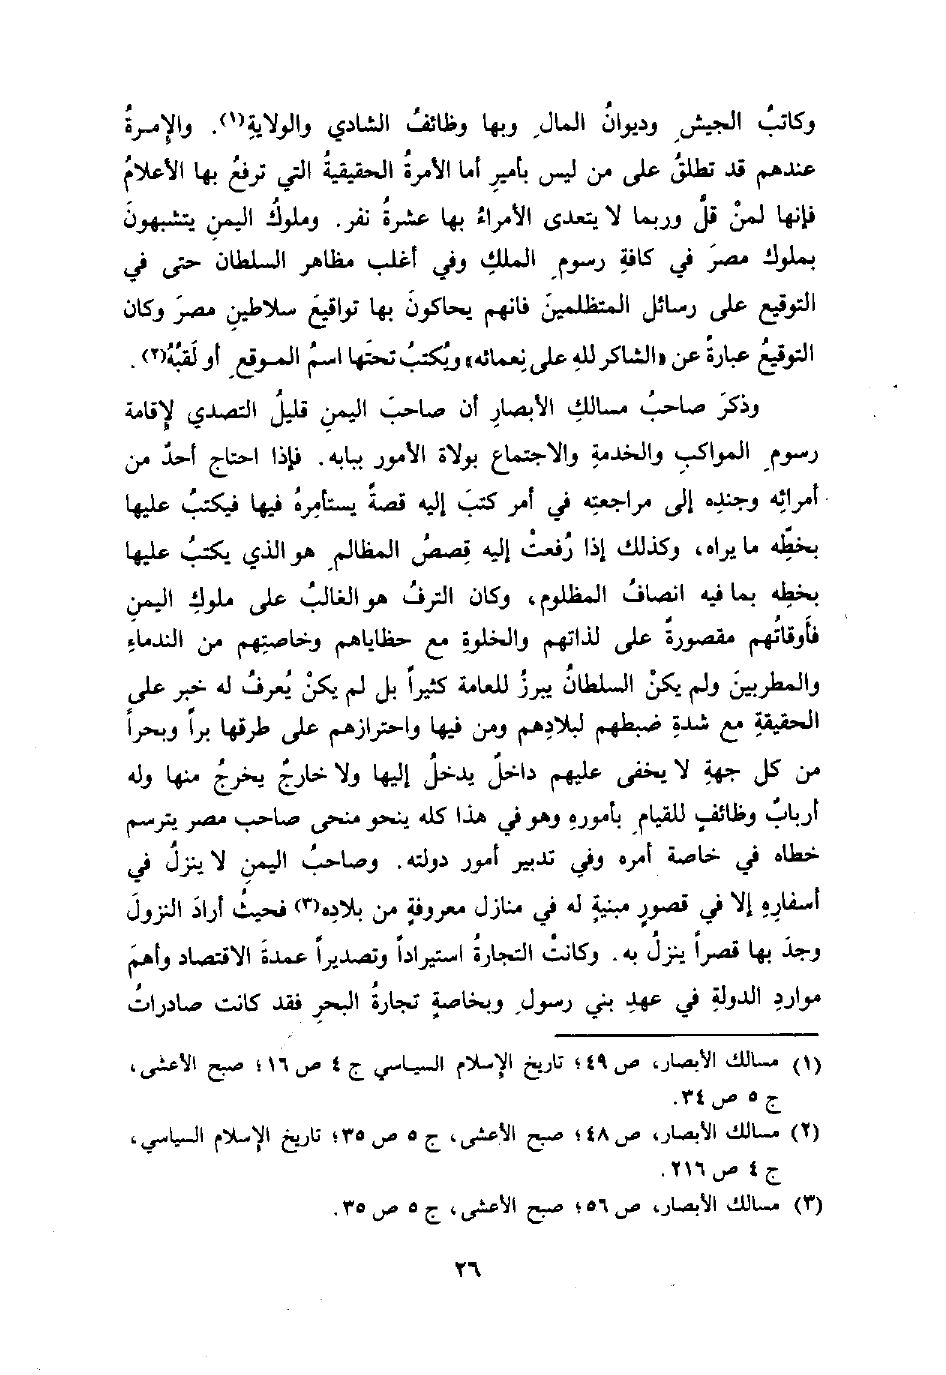 وكاتبُ الجيشِ وديوانُ المالِ وبها وظائفُ الشادي والولايةِ(١). والإمرةُ
عندهم قد تطلقُ على من ليس بأميرِ أما الأمرةُ الحقيقيةُ التي ترفعُ بها الأعلامُ
فإنها لمنْ قلَّ وربما لا يتعدى الأمراءُ بها عشرةُ نفر. وملوكُ اليمنِ يتشبهونَ
بملوك مصرَ في كافةِ رسومِ الملكِ وفي أغلب مظاهر السلطان حتى في
التوقيع على رسائل المتظلمينَ فانهم يحاكونَ بها تواقيعَ سلاطينِ مصرَ وكان
التوقيعُ عبارةً عن «الشاكر للهِ على نِعمائه» ويُكتبُ تحتَها اسمُ الموقعِ أو لَقبُهُ(٢).
وذكرَ صاحبُ مسالكِ الأبصارِ أن صاحبَ اليمنِ قليلُ التصدي لإقامة
رسومِ المواكبِ والخدمةِ والاجتماع بولاة الأمور ببابه. فإذا احتاج أحدٌ من
أمرائِه وجندِه إلى مراجعتِه في أمر كتبَ إليه قصةً يستأمِرهُ فيها فيكتبُ عليها
بخطِّه ما يراه، وكذلك إذا رُفعتْ إليه قِصصُ المظالمِ هو الذي يكتبُ عليها
بخطِه بما فيه انصافُ المظلوم، وكان الترفُ هو الغالبُ على ملوكِ اليمنِ
فأوقاتُهم مقصورةً على لذاتهم والخلوةِ مع حظاياهم وخاصتِهم من الندماءِ
والمطربينَ ولم يكنْ السلطانُ يبرزُ للعامة كثيراً بل لم يكنْ يُعرفُ له خبر على
الحقيقةِ مع شدةِ ضبطهم لبلادِهم ومن فيها واحترازهم على طرقها براً وبحراً
من كل جهةِ لا يخفى عليهم داخلٌ يدخلُ إليها ولا خارجٌ يخرجُ منها وله
أربابُ وظائفٍ للقيامِ بأمورهِ وهو في هذا كله ينحو منحى صاحب مصر يترسم
خطاه في خاصة أمره وفي تدبير أمور دولته. وصاحبُ اليمنِ لا ينزلُ في
أسفارِهِ إلا في قصورٍ مبنيةٍ له في منازل معروفةٍ من بلادِه(٣) فحيثُ أرادَ النزولَ
وجدَ بها قصراً ينزلُ به. وكانتْ التجارةُ استيراداً وتصديراً عمدةَ الاقتصاد وأهمَ
مواردِ الدولةِ في عهدِ بني رسولِ وبخاصةٍ تجارةُ البحرِ فقد كانت صادراتُ
(١) مسالك الأبصار، ص ٤٩؛ تاريخ الإسلام السياسي ج ٤ ص ١٦؛ صبح الأعشى،
ج ٥ ص ٣٤.
(٢) مسالك الأبصار، ص ٤٨؛ صبح الأعشى، ج ٥ ص ٣٥؛ تاريخ الإسلام السياسي،
ج ٤ ص ٢١٦.
(٣) مسالك الأبصار، ص ٥٦؛ صبح الأعشى، ج ٥ ص ٣٥.
٢٦